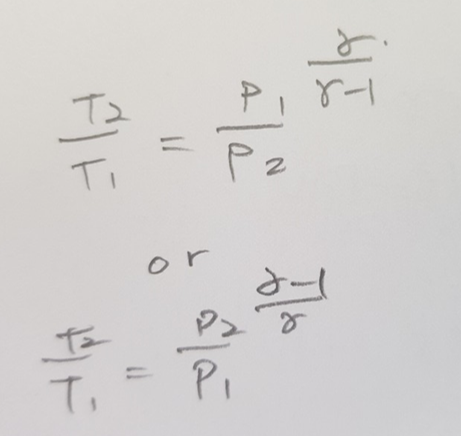 T₂/T₁ = P₁/P₂^(γ/(γ-1))
or
T₂/T₁ = P₂/P₁^((γ-1)/γ)